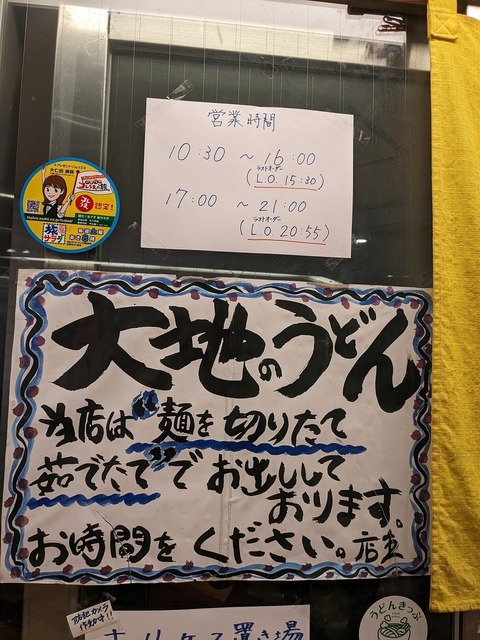 営業時間
10:30 ~ 16:00
ラストオーダー
(L.O. 15:30)
17:00 ~ 21:00
ラストオーダー
(L.O 20:55)
認定!
旅サラダ
大地のうどん
当店は“麺を切りたて
茹でたて”で お出しして
おります。
お時間を ください。店主
防犯カメラ
作動中!!
うどんきっぷ
置き場